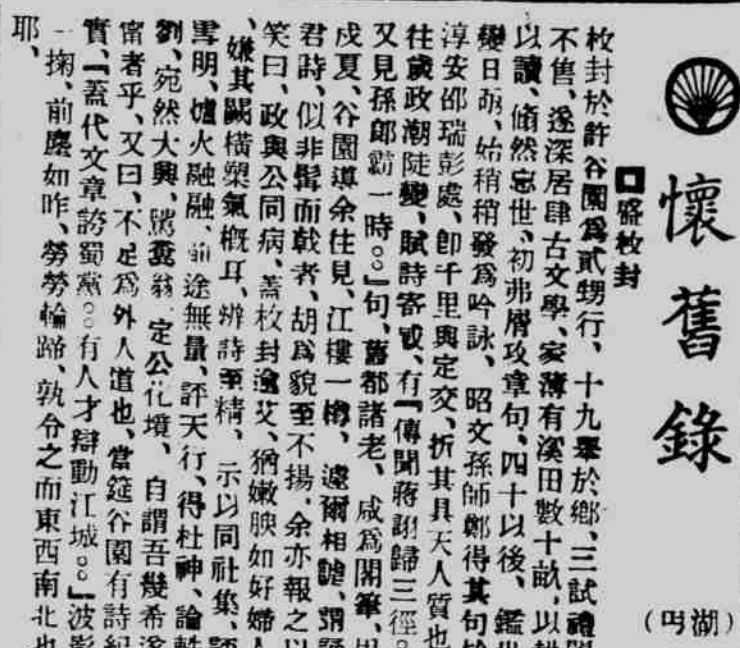 懷舊錄
(湖丐)
枚封於許谷園爲貳甥行、十九舉於鄉、三試禮
不售、遂深居肆古文學、家薄有溪田數十畝、以
以讀、翛然忘世、初弗屑攻章句、四十以後、鑑
變日亟、始稍稍發爲吟詠、昭文孫師鄭得其句
淳安邵瑞彭處、卽千里與定交、折其具天人質也
往歲政潮陡變、賦詩寄、有『傳聞蔣詡歸三徑。
又見孫郎霸一時。。』句、舊都諸老、咸爲閣筆、
戍夏、谷園導余往見、江樓一楹、遽爾相謔、謂
君詩、似非髯而戟者、胡爲貌至不揚、余亦報之以
笑曰、政與公同病、蓋枚封逾艾、猶嫩腴如好婦人
、嫌其闕橫槊氣概耳、辨詩至精、示以同社集、
雪明、爐火融融、前途無量、評天行、得杜神、論
劉、宛然大興、定公化境、自謂吾幾希
甯者乎、又曰、不足爲外人道也、當筵谷園有詩紀
實、『蓋代文章誇蜀黨。。有人才辯動江城。。』波影
一掬、前塵如昨、勞勞輪蹄、孰令之而東西南北也
耶、